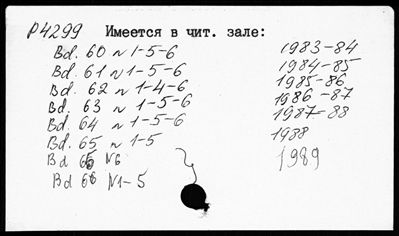 P4299 Имеется в чит. зале:
Bd. 60 N 1-5-6 1983-84
Bd. 61 N 1-5-6 1984-85
Bd. 62 N 1-4-6 1985-86
Bd. 63 N 1-5-6 1986-87
Bd. 64 N 1-5-6 1987-88
Bd. 65 N 1-5 1988
Bd 65 N6 1989
Bd 66 N1-5